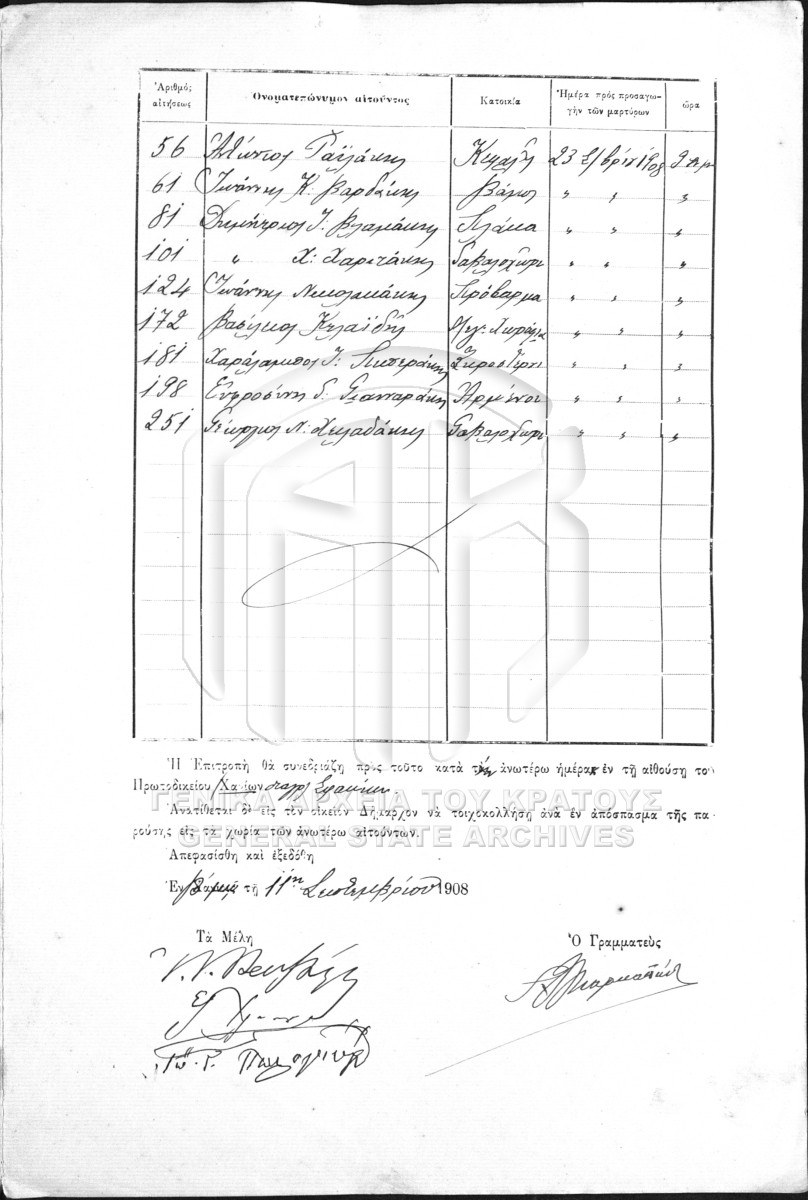 Ἀριθμὸς αἰτήσεως Ὀνοματεπώνυμον αἰτοῦντος Κατοικία Ἡμέρα πρὸς προσαγωγὴν τῶν μαρτύρων ὥρα
56 Κεφαλᾶ 23 7/βρίου 1908 9 π.μ.
61 Ἰωάννης Κ. Βαρδάκης Βάμος " " "
81 Δημήτριος Ι. Βλαμάκης Πλάκα " " "
101 " Χ: Χαριτάκης Γαβαλοχώρι " " "
124 Ἰωάννης Νικολακάκης Πρόβαρμα " " "
172 Βασίλειος Κελαϊδῆς " " "
181 Χαράλαμπος Ι: Πιπεράκης Ξηροστέρνι " " "
198 Εὐφροσύνη Γιανναράκη Ἀρμένοι " " "
251 Γεώργιος Ν: Χειλαδάκης Γαβαλοχώρι " " "
Ἡ Ἐπιτροπὴ θὰ συνεδριάζῃ πρὸς τοῦτο κατὰ τὴν ἀνωτέρω ἡμέραν ἐν τῇ αἰθούσῃ το
Πρωτοδικείου Χανίων
ΓΕΝΙΚΑ ΑΡΧΕΙΑ ΤΟΥ ΚΡΑΤΟΥΣ
Ἀνατίθεται δὲ εἰς τὸν οἰκεῖον Δήμαρχον νὰ τοιχοκολλήσῃ ἀνὰ ἓν ἀπόσπασμα τῆς πα
ρούσης εἰς τὰ χωρία τῶν ἀνωτέρω αἰτούντων.
GENERAL STATE ARCHIVES
Ἀπεφασίσθη καὶ ἐξεδόθη
Ἐν Βάμῳ τῇ 11ῃ Σεπτεμβρίου 1908
Τὰ Μέλη Ὁ Γραμματεὺς